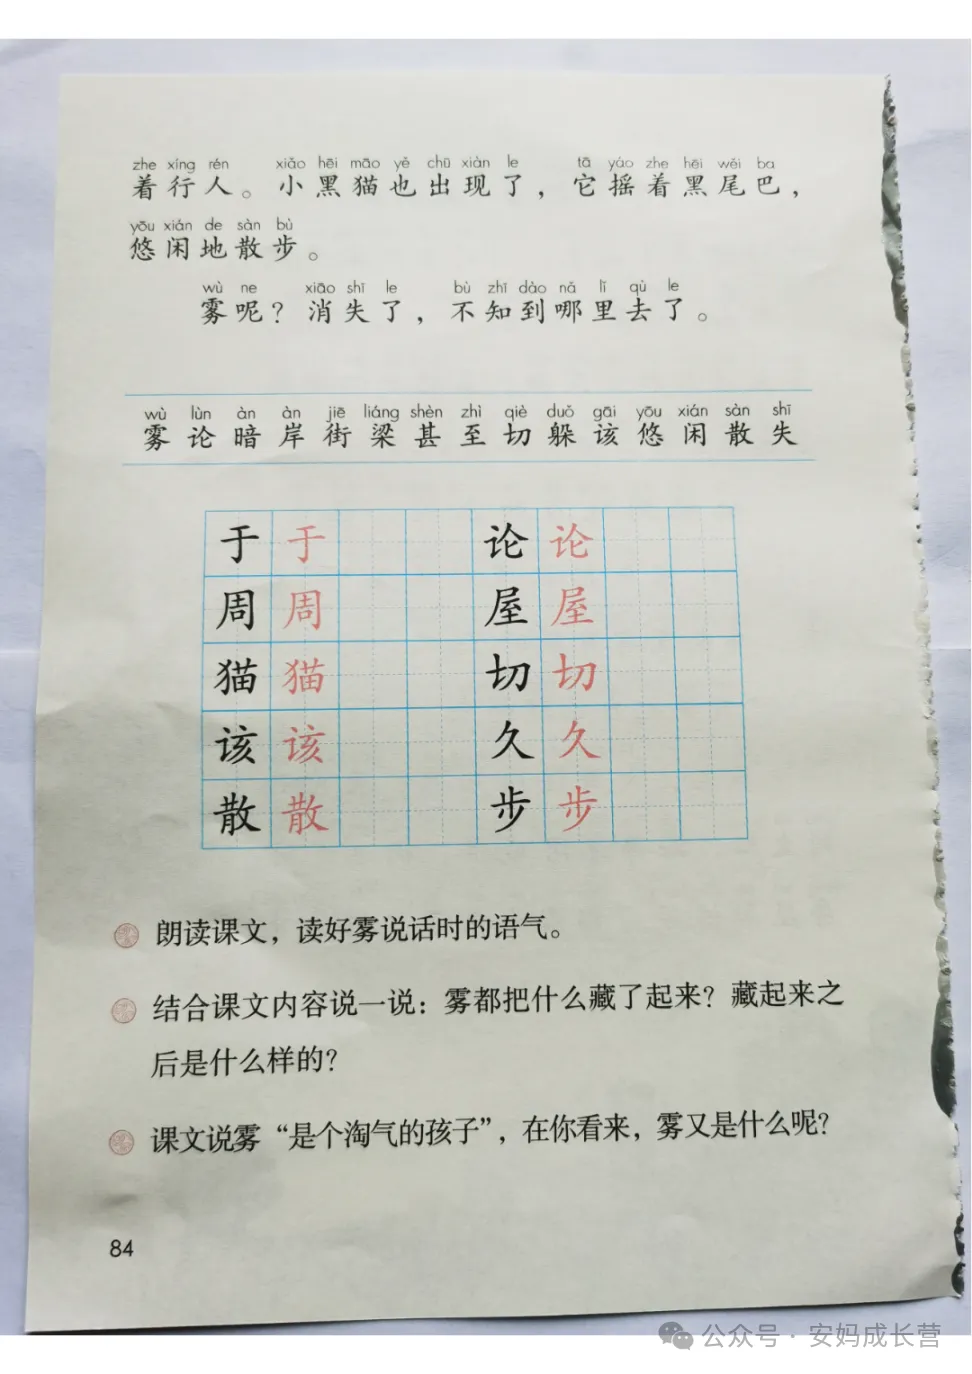 zhe xíng rén xiǎo hēi māo yě chū xiàn le tā yáo zhe hēi wěi ba
着行人。小黑猫也出现了，它摇着黑尾巴，
yōu xián de sàn bù
悠闲地散步。
wù ne xiāo shī le bù zhī dào nǎ lǐ qù le
雾呢？消失了，不知到哪里去了。
wù lùn àn àn jiē liáng shèn zhì qiè duǒ gāi yōu xián sàn shī
雾论暗岸街梁甚至切躲该悠闲散失
于 于 论 论
周 周 屋 屋
猫 猫 切 切
该 该 久 久
散 散 步 步
朗读课文，读好雾说话时的语气。
结合课文内容说一说：雾都把什么藏了起来？藏起来之
后是什么样的？
课文说雾“是个淘气的孩子”，在你看来，雾又是什么呢？
84
公众号·安妈成长营